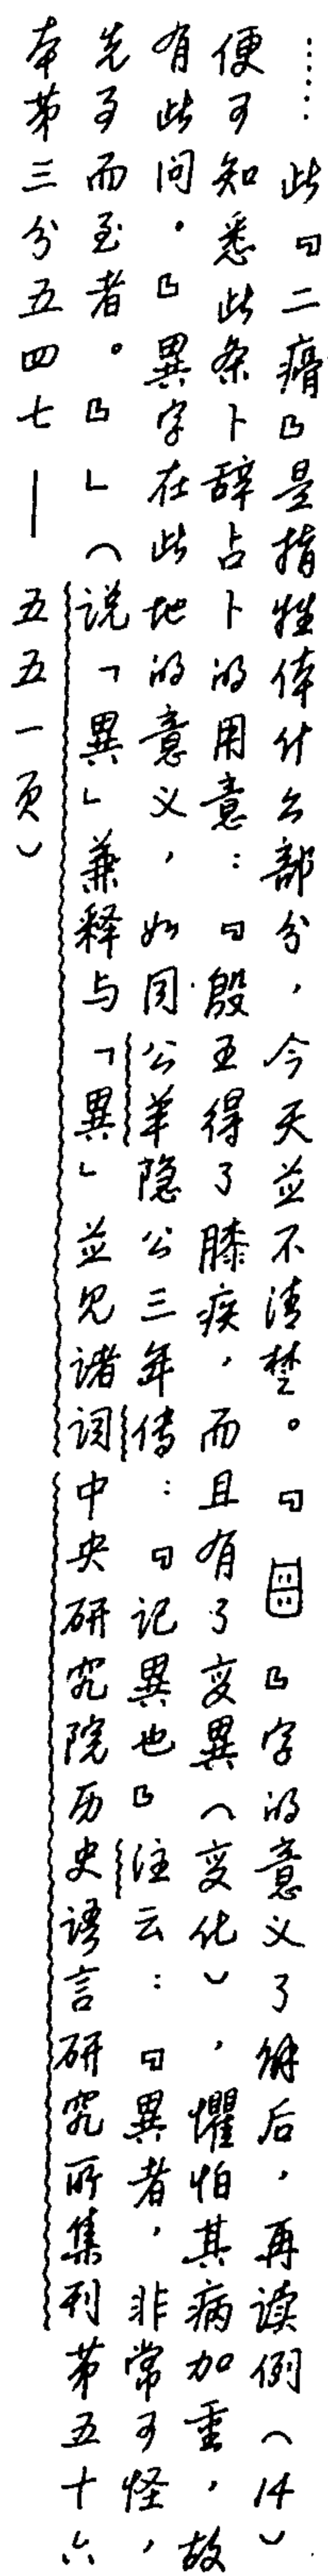 ……此『二瘠』是指牲体什么部分，今天並不清楚。『𠙹』字的意义了解后，再读例（14）
便可知悉此条卜辞占卜的用意：『殷王得了膝疾，而且有了变異（变化），懼怕其病加重，故
有此问。』異字在此地的意义，如同公羊隐公三年传：『记異也』注云：『異者，非常可怪，
先事而至者。』」（说「異」兼释与「異」並见诸词中央研究院历史语言研究所集刊第五十六
本第三分五四七—五五一页）